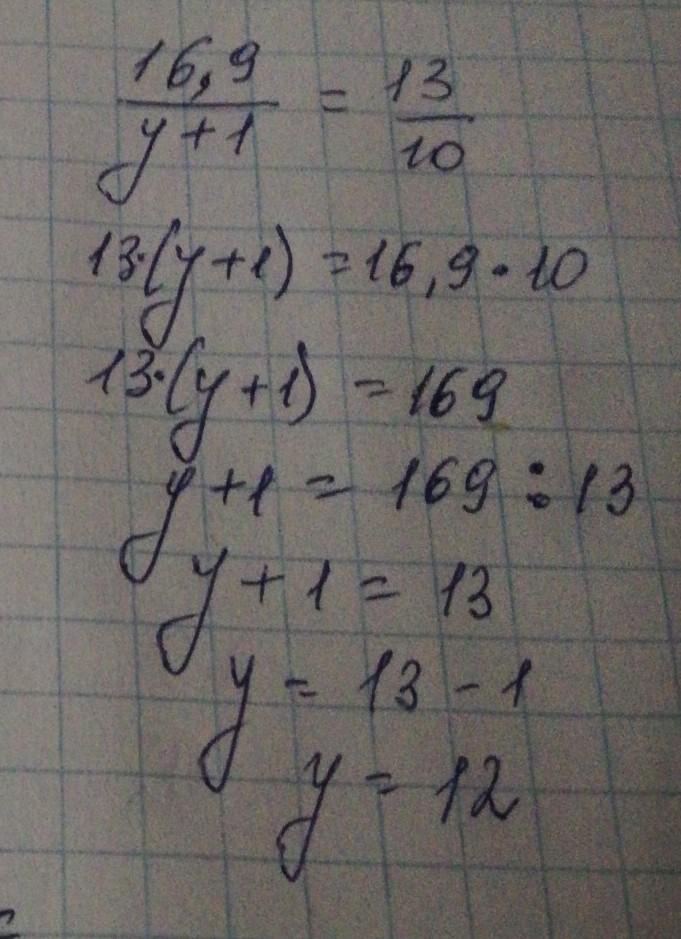 16,9 / y + 1 = 13 / 10
13·(y+1) = 16,9 · 10
13·(y+1) = 169
y+1 = 169 : 13
y + 1 = 13
y = 13 - 1
y = 12